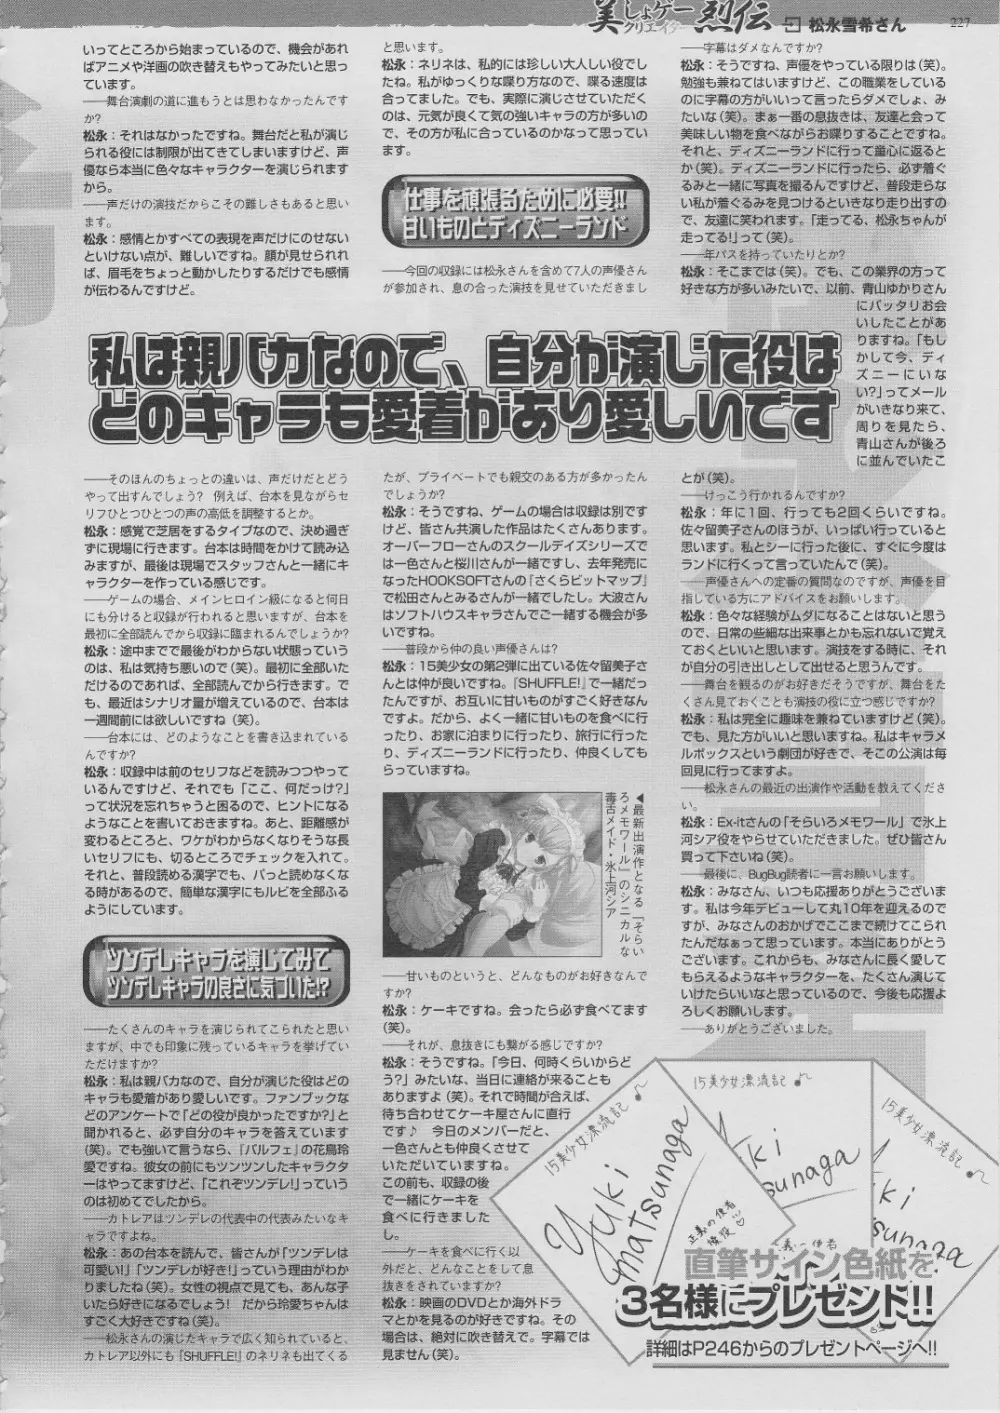 美しょゲー
クリエイター
烈伝
松永雪希さん
227
いってところから始まっているので、機会があれ
ばアニメや洋画の吹き替えもやってみたいと思っ
ています。
――舞台演劇の道に進もうとは思わなかったんです
か?
松永：それはなかったですね。舞台だと私が演じ
られる役には制限が出てきてしまいますけど、声
優なら本当に色々なキャラクターを演じられます
から。
――声だけの演技だからこその難しさもあると思い
ます。
松永：感情とかすべての表現を声だけにのせない
といけない点が、難しいですね。顔が見せられれ
ば、眉毛をちょっと動かしたりするだけでも感情
が伝わるんですけど。
と思います。
松永：ネリネは、私的には珍しい大人しい役でし
たね。私がゆっくりな喋り方なので、喋る速度は
合ってました。でも、実際に演じさせていただく
のは、元気が良くて気の強いキャラの方が多いの
で、その方が私に合っているのかなって思ってい
ます。
仕事を頑張るために必要!!
甘いものとディズニーランド
――今回の収録には松永さんを含めて7人の声優さん
が参加され、息の合った演技を見せていただきまし
――字幕はダメなんですか?
松永：そうですね、声優をやっている限りは（笑）。
勉強も兼ねてはいますけど、この職業をしている
のに字幕の方がいいって言ったらダメでしょ、み
たいな（笑）。まぁ一番の息抜きは、友達と会って
美味しい物を食べながらお喋りすることですね。
それと、ディズニーランドに行って童心に返ると
か（笑）。ディズニーランドに行ったら、必ず着ぐ
るみと一緒に写真を撮るんですけど、普段走らな
い私が着ぐるみを見つけるといきなり走り出すの
で、友達に笑われます。「走ってる、松永ちゃんが
走ってる!」って（笑）。
――年パスを持っていたりとか?
松永：そこまでは（笑）。でも、この業界の方って
好きな方が多いみたいで、以前、青山ゆかりさん
にバッタリお会
いしたことがあ
りますね。「もし
かして今、ディ
ズニーにいな
い?」ってメール
がいきなり来て、
周りを見たら、
青山さんが後ろ
に並んでいたこ
私は親バカなので、自分が演じた役は
どのキャラも愛着があり愛しいです
――そのほんのちょっとの違いは、声だけだとどう
やって出すんでしょう? 例えば、台本を見ながらセ
リフひとつひとつの声の高低を調整するとか。
松永：感覚で芝居をするタイプなので、決め過ぎ
ずに現場に行きます。台本は時間をかけて読み込
みますが、最後は現場でスタッフさんと一緒にキ
ャラクターを作っている感じです。
――ゲームの場合、メインヒロイン級になると何日
にも分けると収録が行われると思いますが、台本を
最初に全部読んでから収録に臨まれるんでしょうか?
松永：途中までで最後がわからない状態っていう
のは、私は気持ち悪いので（笑）。最初に全部いた
だけるのであれば、全部読んでから行きます。で
も、最近はシナリオ量が増えているので、台本は
一週間前には欲しいですね（笑）。
――台本には、どのようなことを書き込まれている
んですか?
松永：収録中は前のセリフなどを読みつつやって
いるんですけど、それでも「ここ、何だっけ?」
って状況を忘れちゃうと困るので、ヒントになる
ようなことを書いておきますね。あと、距離感が
変わるところと、ワケがわからなくなりそうな長
いセリフにも、切るところでチェックを入れて。
それと、普段読める漢字でも、パっと読めなくな
る時があるので、簡単な漢字にもルビを全部ふる
ようにしています。
ツンデレキャラを演じてみて
ツンデレキャラの良さに気づいた!?
――たくさんのキャラを演じられてこられたと思い
ますが、中でも印象に残っているキャラを挙げてい
ただけますか?
松永：私は親バカなので、自分が演じた役はどの
キャラも愛着があり愛しいです。ファンブックな
どのアンケートで「どの役が良かったですか?」と
聞かれると、必ず自分のキャラを答えています
（笑）。でも強いて言うなら、『パルフェ』の花鳥玲
愛ですね。彼女の前にもツンツンしたキャラクタ
ーはやってますけど、「これぞツンデレ!」っていう
のは初めてでしたから。
――カトレアはツンデレの代表中の代表みたいなキ
ャラですよね。
松永：あの台本を読んで、皆さんが「ツンデレは
可愛い!」「ツンデレが好き!」っていう理由がわか
りましたね（笑）。女性の視点で見ても、あんな子
いたら好きになるでしょう! だから玲愛ちゃんは
すごく大好きですね（笑）。
――松永さんの演じたキャラで広く知られていると、
カトレア以外にも『SHUFFLE!』のネリネも出てくる
たが、プライベートでも親交のある方が多かったん
でしょうか?
松永：そうですね、ゲームの場合は収録は別です
けど、皆さん共演した作品はたくさんあります。
オーバーフローさんのスクールデイズシリーズで
は一色さんと桜川さんが一緒ですし、去年発売に
なったHOOKSOFTさんの『さくらビットマップ』
で松田さんとみるさんが一緒でしたし。大波さん
はソフトハウスキャラさんでご一緒する機会が多
いですね。
――普段から仲の良い声優さんは?
松永：15美少女の第2弾に出ている佐々留美子さ
んとは仲が良いですね。『SHUFFLE!』で一緒だっ
たんですが、お互いに甘いものがすごく好きなん
ですよ。だから、よく一緒に甘いものを食べに行
ったり、お家に泊まりに行ったり、旅行に行った
り、ディズニーランドに行ったり、仲良くしても
らっていますね。
◀最新出演作となる『そらい
ろメモワール』のシニカルな
毒舌メイド・氷上河シア
――甘いものというと、どんなものがお好きなんで
すか?
松永：ケーキですね。会ったら必ず食べてます
（笑）。
――それが、息抜きにも繋がる感じですか?
松永：そうですね。「今日、何時くらいからど
う?」みたいな、当日に連絡が来ることも
ありますよ（笑）。それで時間が合えば、
待ち合わせてケーキ屋さんに直行
です♪ 今日のメンバーだと、
一色さんとも仲良くさせて
いただいていますね。
この前も、収録の後
で一緒にケーキを
食べに行きました
し。
――ケーキを食べに行く以
外だと、どんなことをして息
抜きをされていますか?
松永：映画のDVDとか海外ドラ
マとかを見るのが好きですね。その
場合は、絶対に吹き替えで。字幕では
見ません（笑）。
とが（笑）。
――けっこう行かれるんですか?
松永：年に1回、行っても2回くらいですね。
佐々留美子さんのほうが、いっぱい行っていると
思います。私とシーに行った後に、すぐに今度は
ランドに行くって言っていたんで（笑）。
――声優さんへの定番の質問なのですが、声優を目
指している方にアドバイスをお願いします。
松永：色々な経験がムダになることはないと思う
ので、日常の些細な出来事とかも忘れないで覚え
ておくといいと思います。演技をする時に、それ
が自分の引き出しとして出せると思うんです。
――舞台を観るのがお好きだそうですが、舞台をた
くさん見ておくことも演技の役に立つ感じですか?
松永：私は完全に趣味を兼ねていますけど（笑）。
でも、見た方がいいと思いますね。私はキャラメ
ルボックスという劇団が好きで、そこの公演は毎
回見に行ってますよ。
――松永さんの最近の出演作や活動を教えてくださ
い。
松永：Ex-itさんの『そらいろメモワール』で氷上
河シア役をやらせていただきました。ぜひ皆さん
買って下さいね（笑）。
――最後に、BugBug読者に一言お願いします。
松永：みなさん、いつも応援ありがとうございま
す。私は今年デビューして丸10年を迎えるので
すが、みなさんのおかげでここまで続けてこられ
たんだなぁって思っています。本当にありがとう
ございます。これからも、みなさんに長く愛して
もらえるようなキャラクターを、たくさん演じて
いけたらいいなと思っているので、今後も応援よ
ろしくお願いします。
――ありがとうございました。
15美少女漂流記♪
Yuki
matsunaga
正義の使者
15美少女漂流記♪
ki
sunaga
15美少女漂流記♪
ki
sunaga
直筆サイン色紙を
3名様にプレゼント!!
詳細はP246からのプレゼントページへ!!